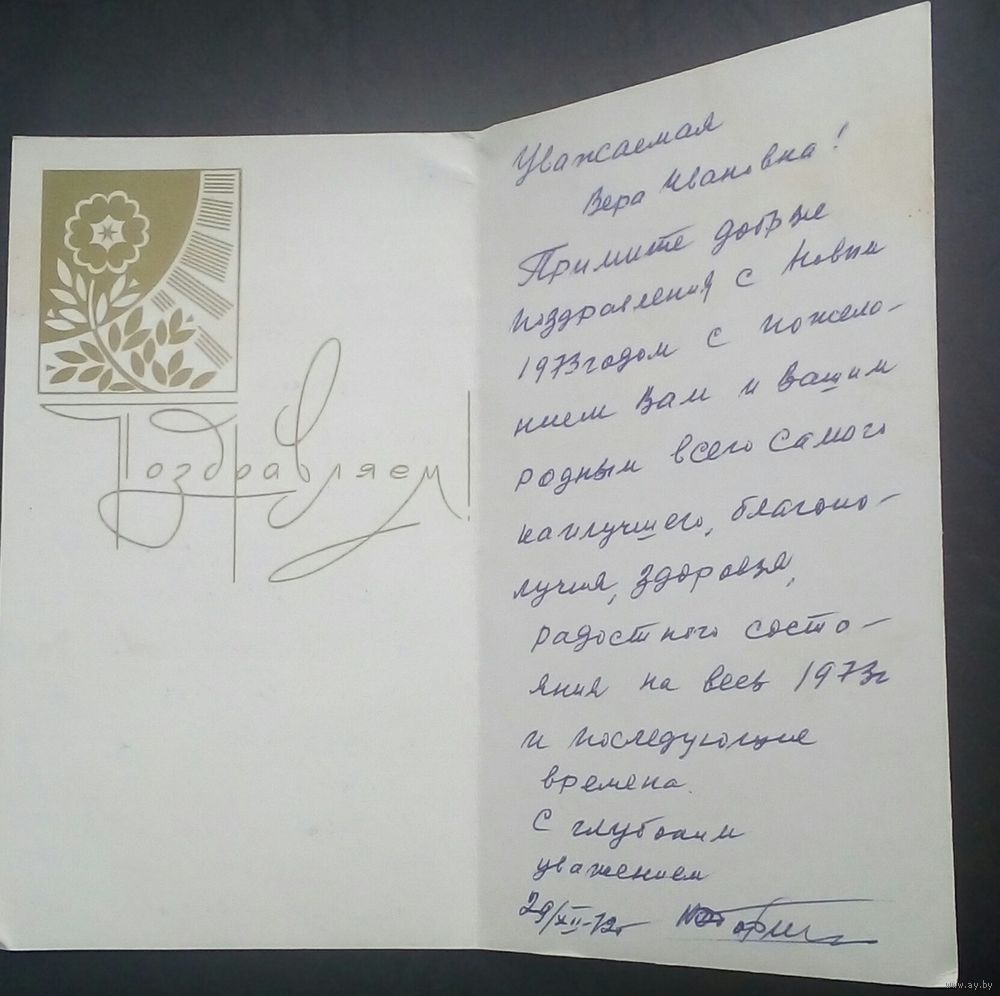 Поздравляем!
Уважаемая
Вера Ивановна!
Примите добрые
поздравления с Новым
1973 годом с пожела-
нием Вам и вашим
родным всего самого
наилучшего, благопо-
лучия, здоровья,
радостного состо-
яния на весь 1973г
и последующие
времена.
С глубоким
уважением
29/XII-72г
www.ay.by